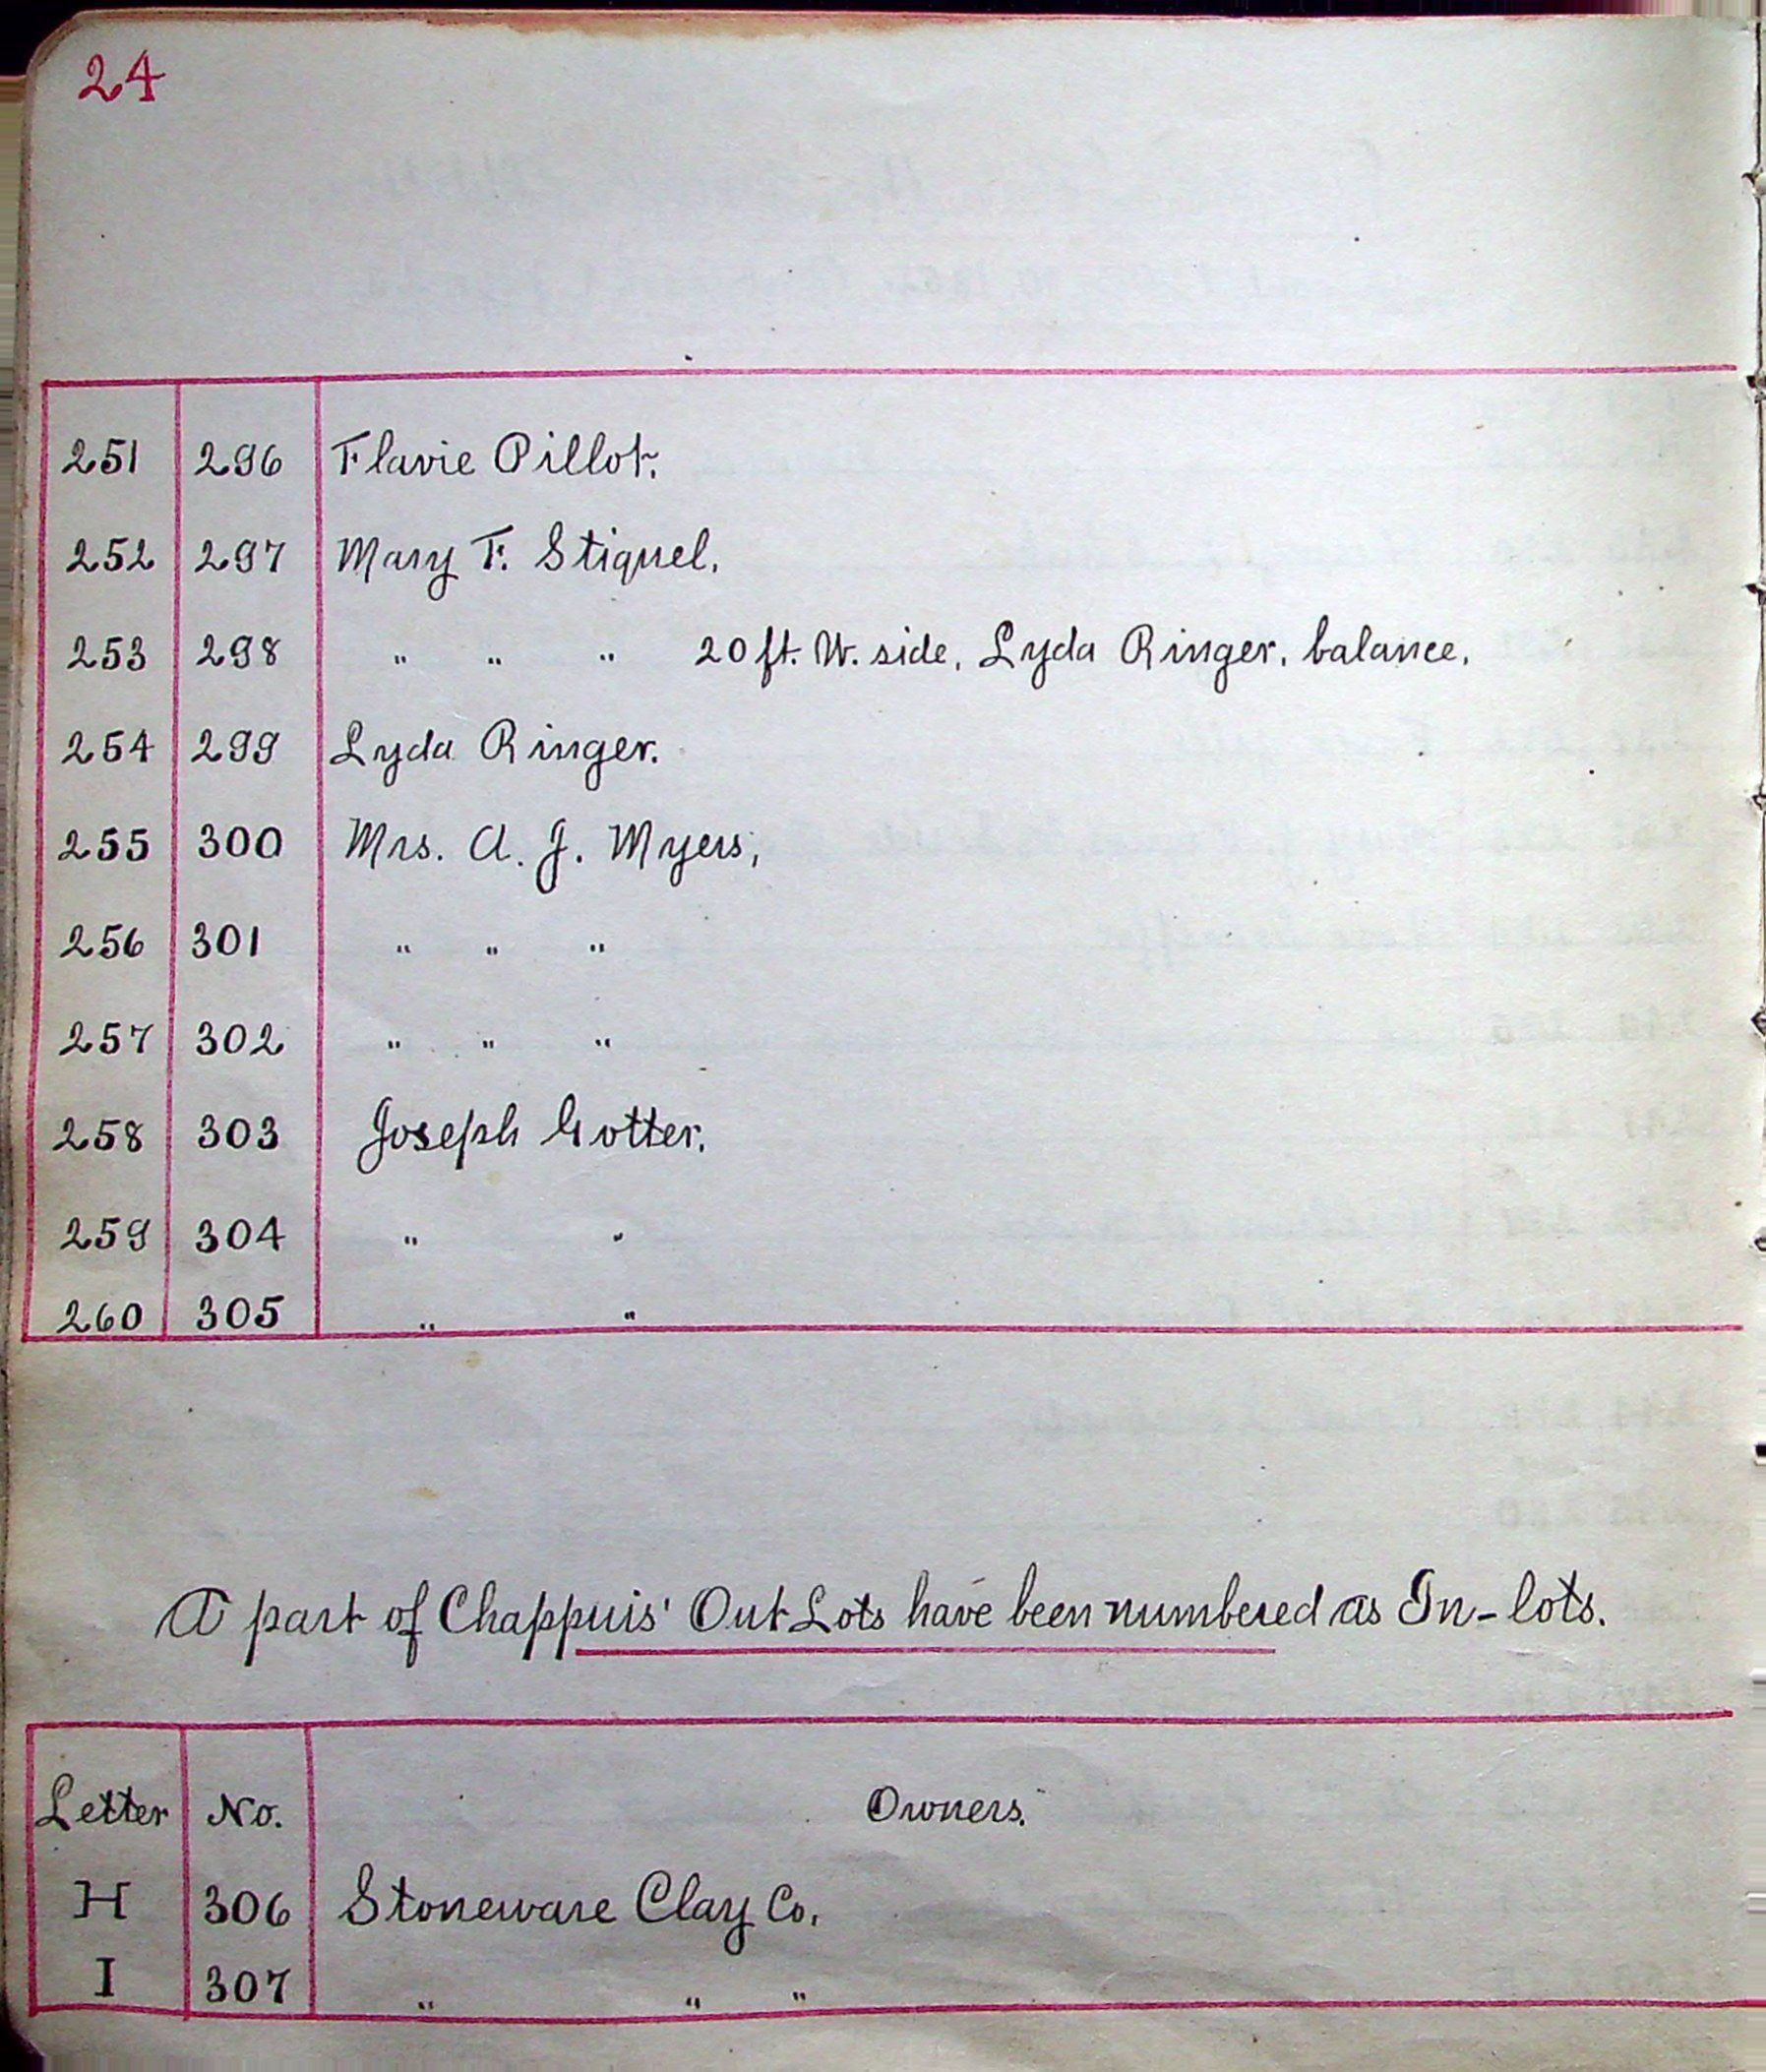 24
251 296 Flavie Pillot.
252 297 Mary F. Stiquel.
253 298 " " " 20 ft. W. side, Lyda Ringer, balance.
254 299 Lyda Ringer.
255 300 Mrs. A. J. Myers,
256 301 " " "
257 302 " " "
258 303 Joseph Gotter.
259 304 " "
260 305 " "
A part of Chappuis' Out Lots have been numbered as In-lots.
Letter No. Owners.
H 306 Stoneware Clay Co.
I 307 " " "